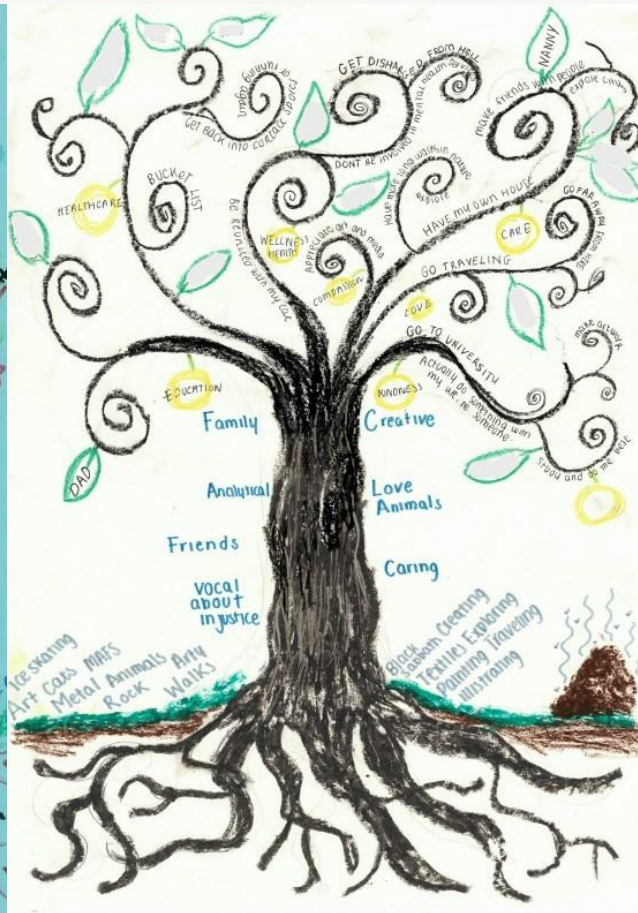 GET DISHARGED FROM HELL
NANNY
make friends with people
GET BACK INTO CONTACT SPORTS
or running
again
DONT BE INVOLVED in mental health
BUCKET LIST
HEALTHCARE
Have more long walks in nature
explore
HAVE MY OWN HOUSE
CARE
GO FAR AWAY FROM HERE
BE REUNITED with my cat
WELLNESS
HEALTH
Appreciate art and media
COMPASSION
GO TRAVELING
LOVE
GO TO UNIVERSITY
make artwork
Actually do something with
my life. Be someone.
EDUCATION
KINDNESS
Study and do me best
DAD
Family
Creative
Analytical
Love
Animals
Friends
Caring
Vocal
about
injustice
Ice skating
Art Cats MATS
Metal Animals Arty
Rock Walks
Black
Sabbath Creating
Textiles Exploring
Painting Traveling
Illustrating